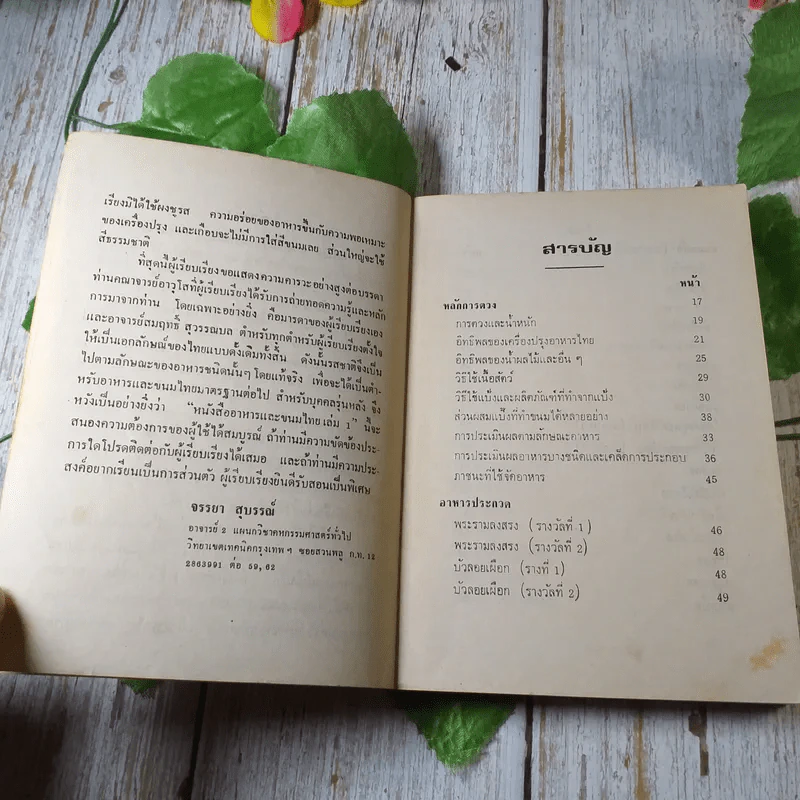 เรียงมิได้ใช้ผงชูรส ความอร่อยของอาหารขึ้นกับความพอเหมาะ
ของเครื่องปรุง และเกือบจะไม่มีการใส่สีขนมเลย ส่วนใหญ่จะใช้
สีธรรมชาติ
ที่สุดนี้ผู้เรียบเรียงขอแสดงความคารวะอย่างสูงต่อบรรดา
ท่านคณาจารย์อาวุโสที่ผู้เรียบเรียงได้รับการถ่ายทอดความรู้และหลัก
การมาจากท่าน โดยเฉพาะอย่างยิ่ง คือมารดาของผู้เรียบเรียงเอง
และอาจารย์สมฤทธิ์ สุวรรณบล ตำหรับทุกตำหรับผู้เรียบเรียงตั้งใจ
ให้เป็นเอกลักษณ์ของไทยแบบดั้งเดิมทั้งสิ้น ดังนั้นรสชาติจึงเป็น
ไปตามลักษณะของอาหารชนิดนั้นๆ โดยแท้จริง เพื่อจะได้เป็นตำ-
หรับอาหารและขนมไทยมาตรฐานต่อไป สำหรับบุคคลรุ่นหลัง จึง
หวังเป็นอย่างยิ่งว่า "หนังสืออาหารและขนมไทย เล่ม 1" นี้จะ
สนองความต้องการของผู้ใช้ได้สมบูรณ์ ถ้าท่านมีความขัดข้องประ-
การใดโปรดติดต่อกับผู้เรียบเรียงได้เสมอ และถ้าท่านมีความประ-
สงค์อยากเรียนเป็นการส่วนตัว ผู้เรียบเรียงยินดีรับสอนเป็นพิเศษ
จรรยา สุบรรณ์
อาจารย์ 2 แผนกวิชาคหกรรมศาสตร์ทั่วไป
วิทยาเขตเทคนิคกรุงเทพ ฯ ซอยสวนพลู ก.ท. 12
2863991 ต่อ 59, 62
สารบัญ
หน้า
หลักการตวง 17
การตวงและน้ำหนัก 19
อิทธิพลของเครื่องปรุงอาหารไทย 21
อิทธิพลของน้ำผลไม้และอื่น ๆ 25
วิธีใช้เนื้อสัตว์ 29
วิธีใช้แป้งและผลิตภัณฑ์ที่ทำจากแป้ง 30
ส่วนผสมแป้งที่ทำขนมได้หลายอย่าง 38
การประเมินผลตามลักษณะอาหาร 33
การประเมินผลอาหารบางชนิดและเคล็ดการประกอบ 36
ภาชนะที่ใช้จัดอาหาร 45
อาหารประกวด
พระรามลงสรง (รางวัลที่ 1) 46
พระรามลงสรง (รางวัลที่ 2) 48
บัวลอยเผือก (รางที่ 1) 48
บัวลอยเผือก (รางวัลที่ 2) 49